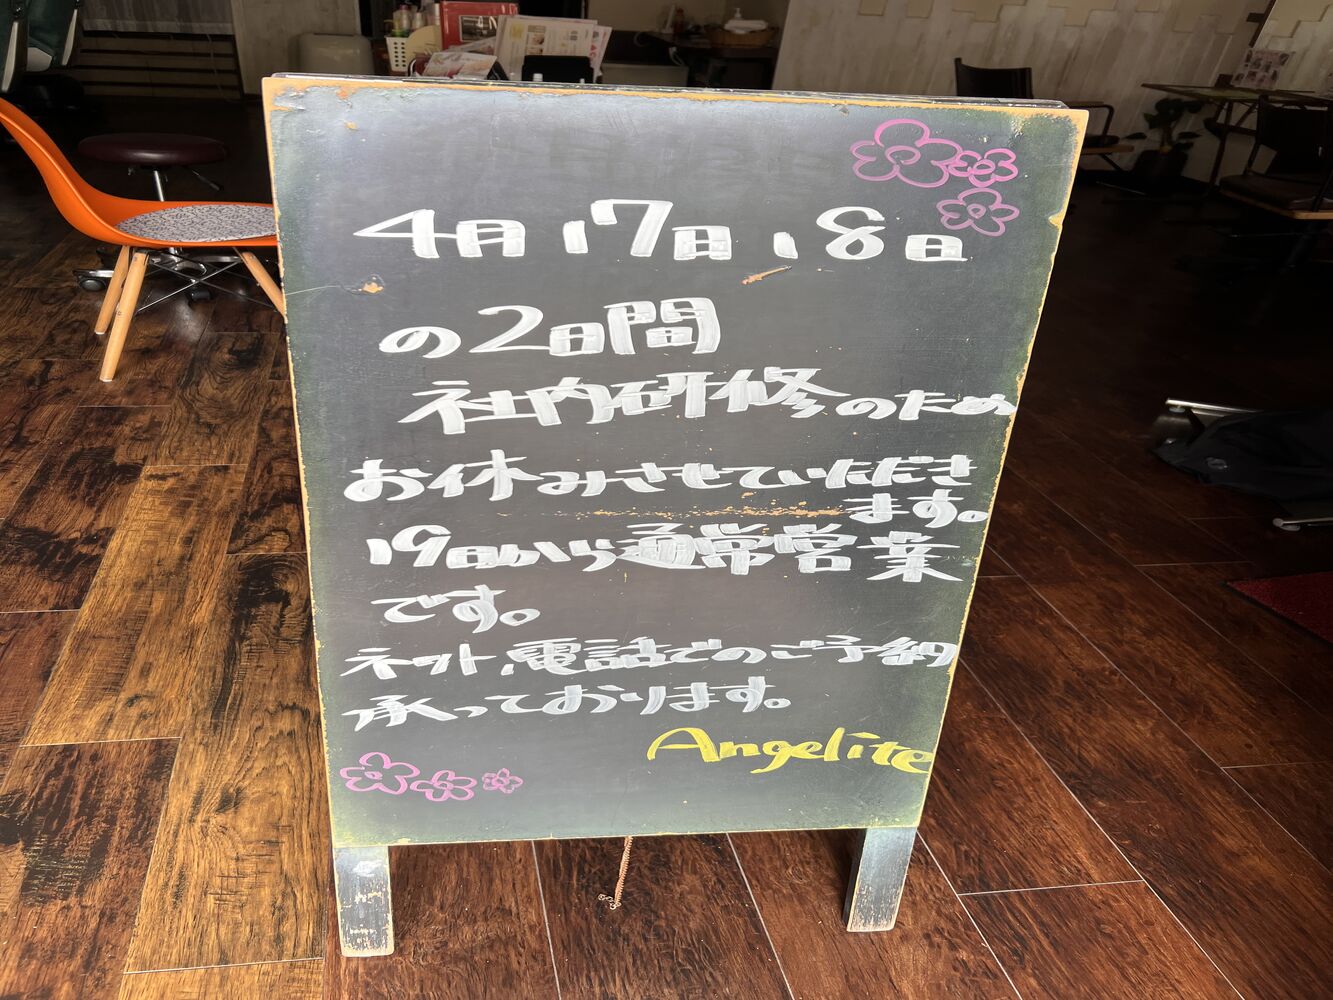 4月17日、18日
の2日間
社内研修のため
お休みさせていただき
ます。
19日から通常営業
です。
ネット、電話でのご予約
承っております。
Angelite